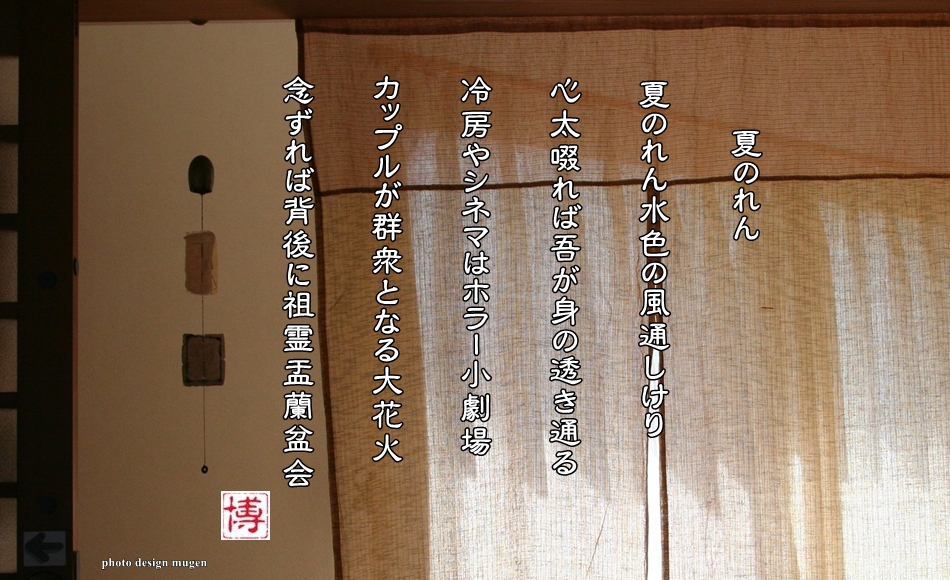 夏のれん
夏のれん水色の風通しけり
心太啜れば吾が身の透き通る
冷房やシネマはホラー小劇場
カップルが群衆となる大花火
念ずれば背後に祖霊盂蘭盆会
博
photo design mugen